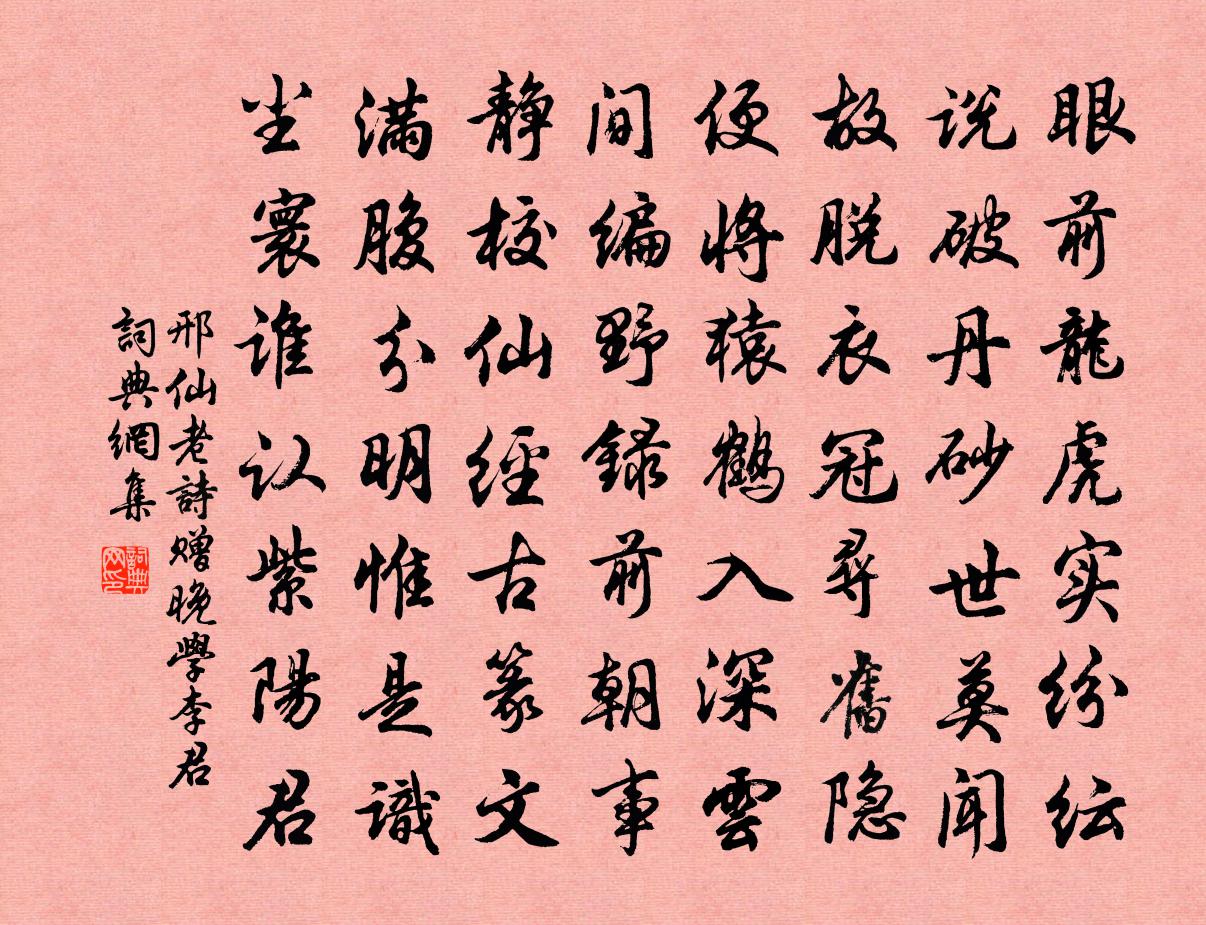 眼前龍虎实纷纭
说破丹砂世莫闻
故脱衣冠尋舊隐
便将猿鹤入深雲
间编野録前朝事
静校仙经古篆文
满腹分明惟是識
尘寰谁认紫陽君
邢仙老詩赠晚學李君
詞典網集
詞典網印